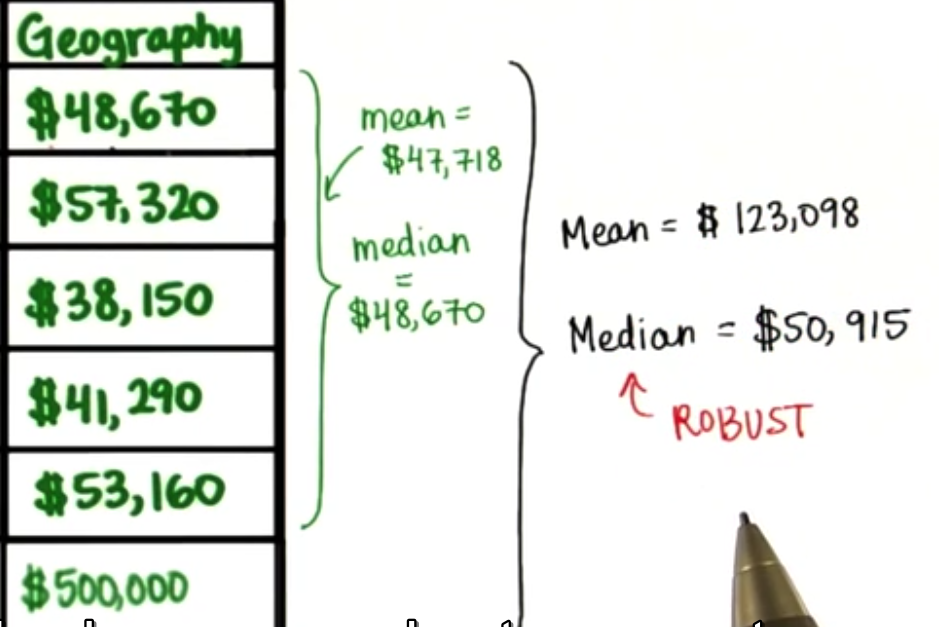 Geography
$48,670
$57,320
$38,150
$41,290
$53,160
$500,000
mean =
$47,718
median
=
$48,670
Mean = $ 123,098
Median = $50,915
ROBUST